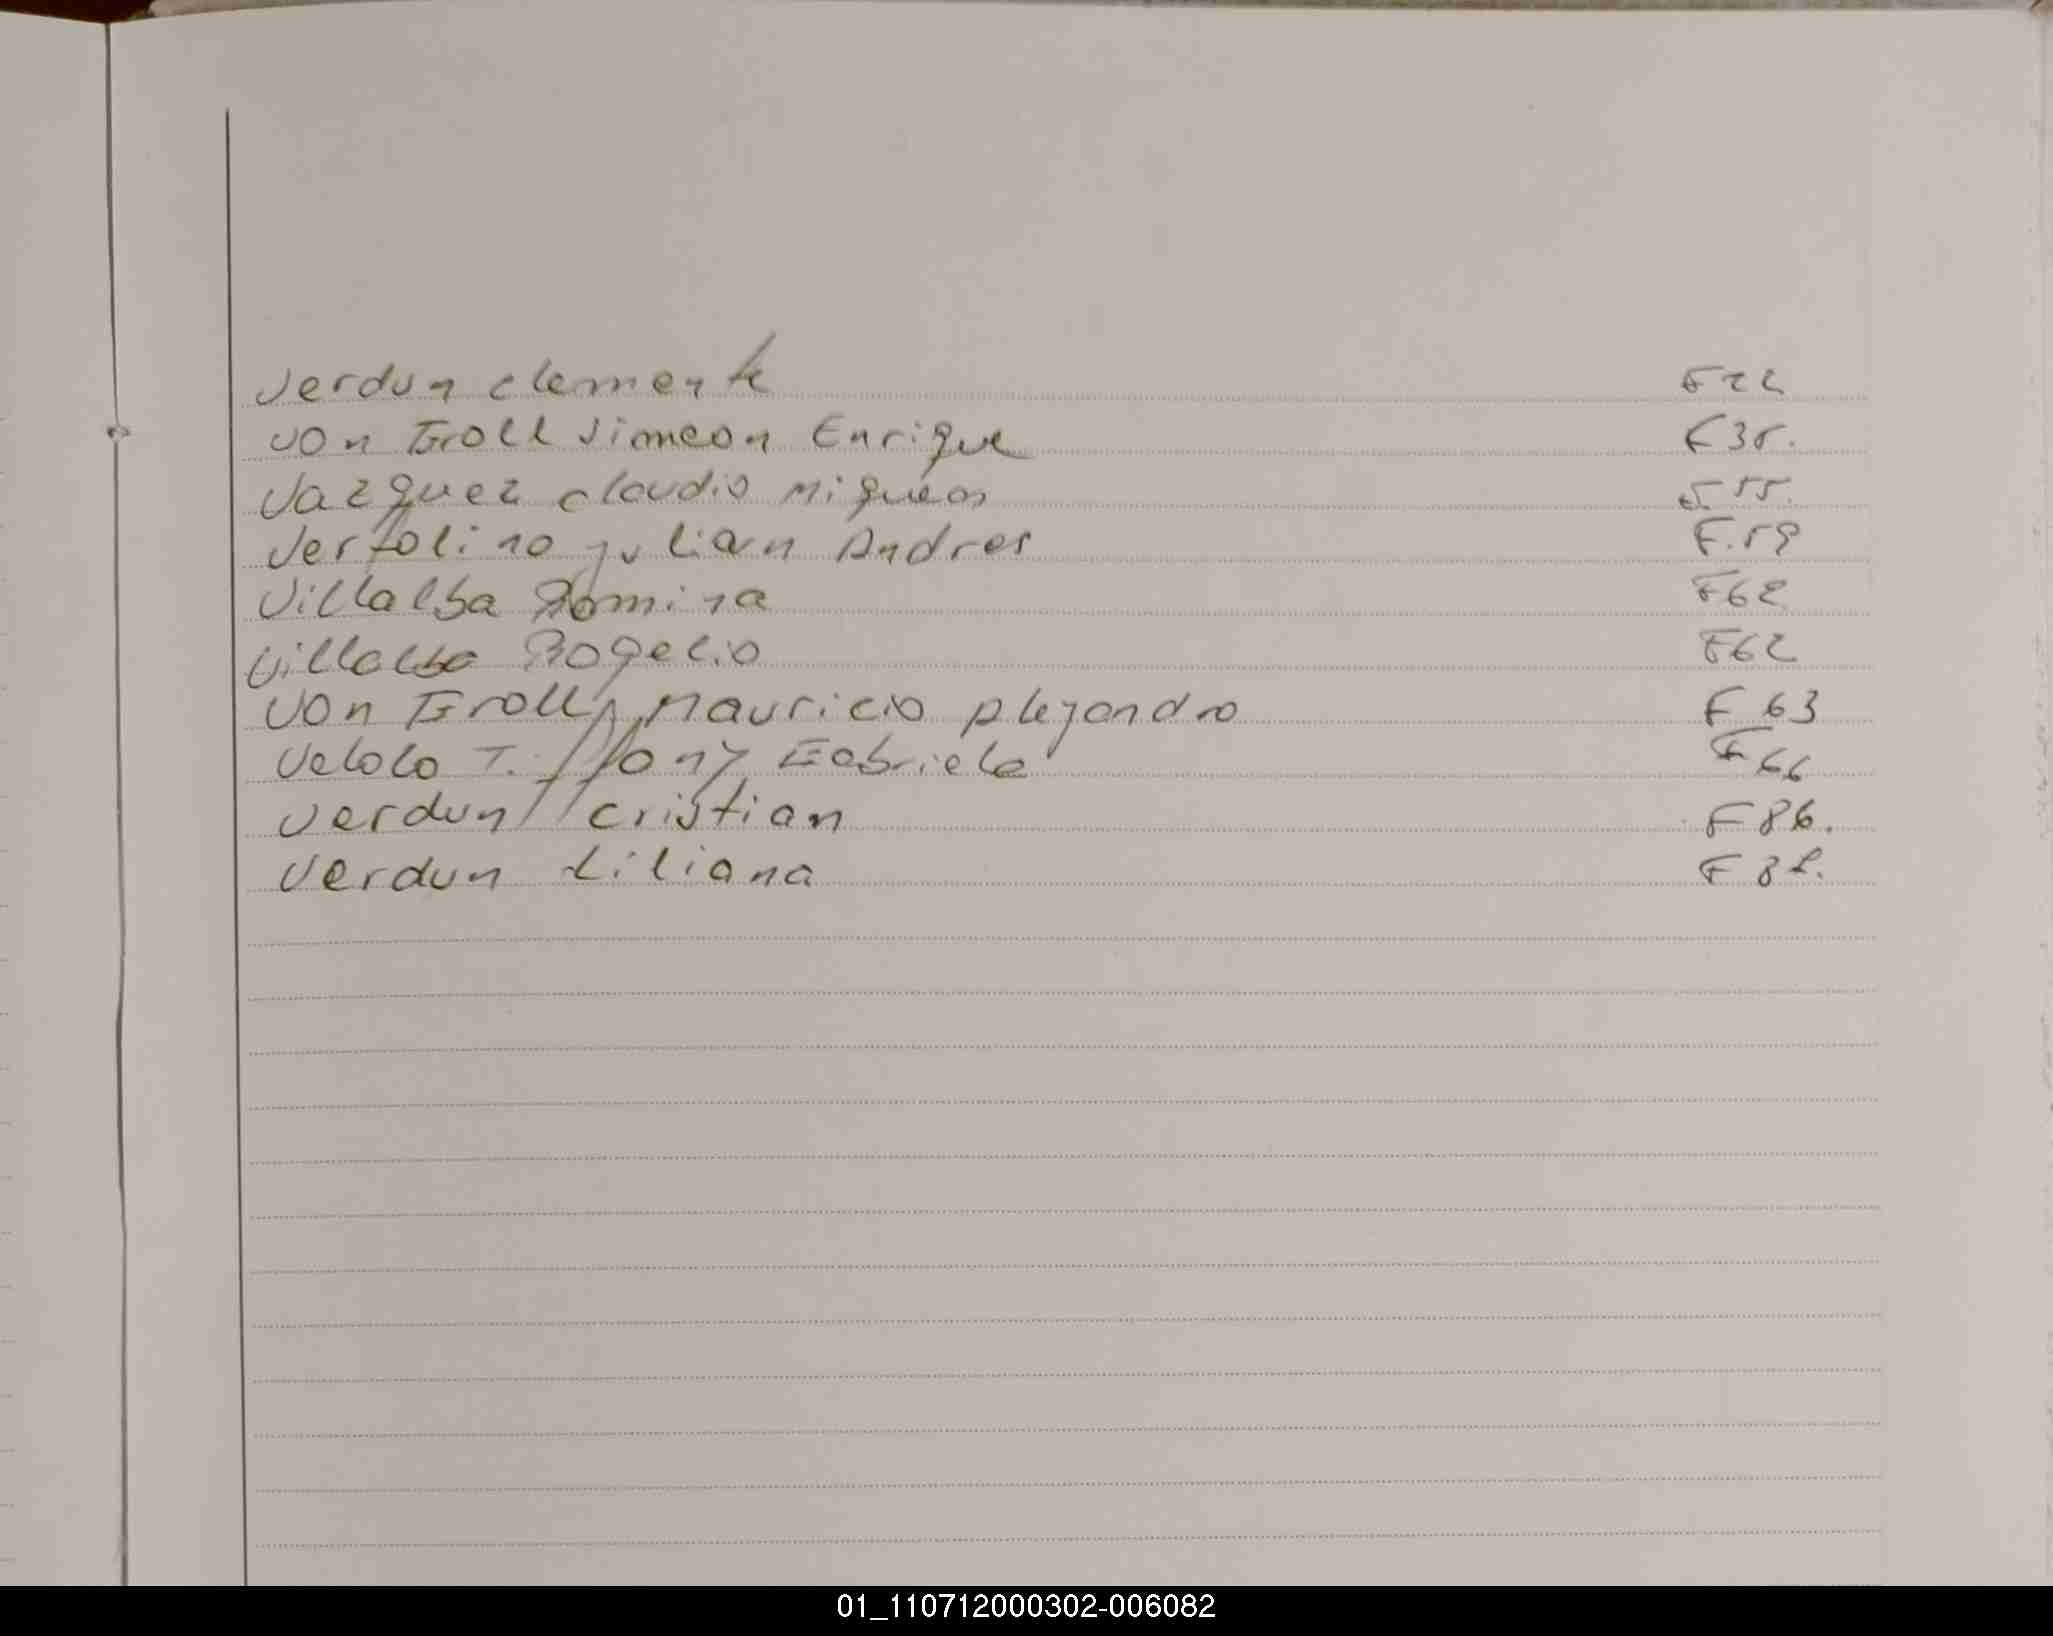 Verdun clemente F22
Von Groll Simeon Enrique F35.
Vazquez claudio Miqueas F 55.
Verfolino Julian Andres F.59
Villalba Romina F62
Villalba Rogelio F62
Von Groll Mauricio Alejandro F 63
Velolo T. Gabriela F66
Verdun cristian F86.
Verdun Liliana
01_110712000302-006082